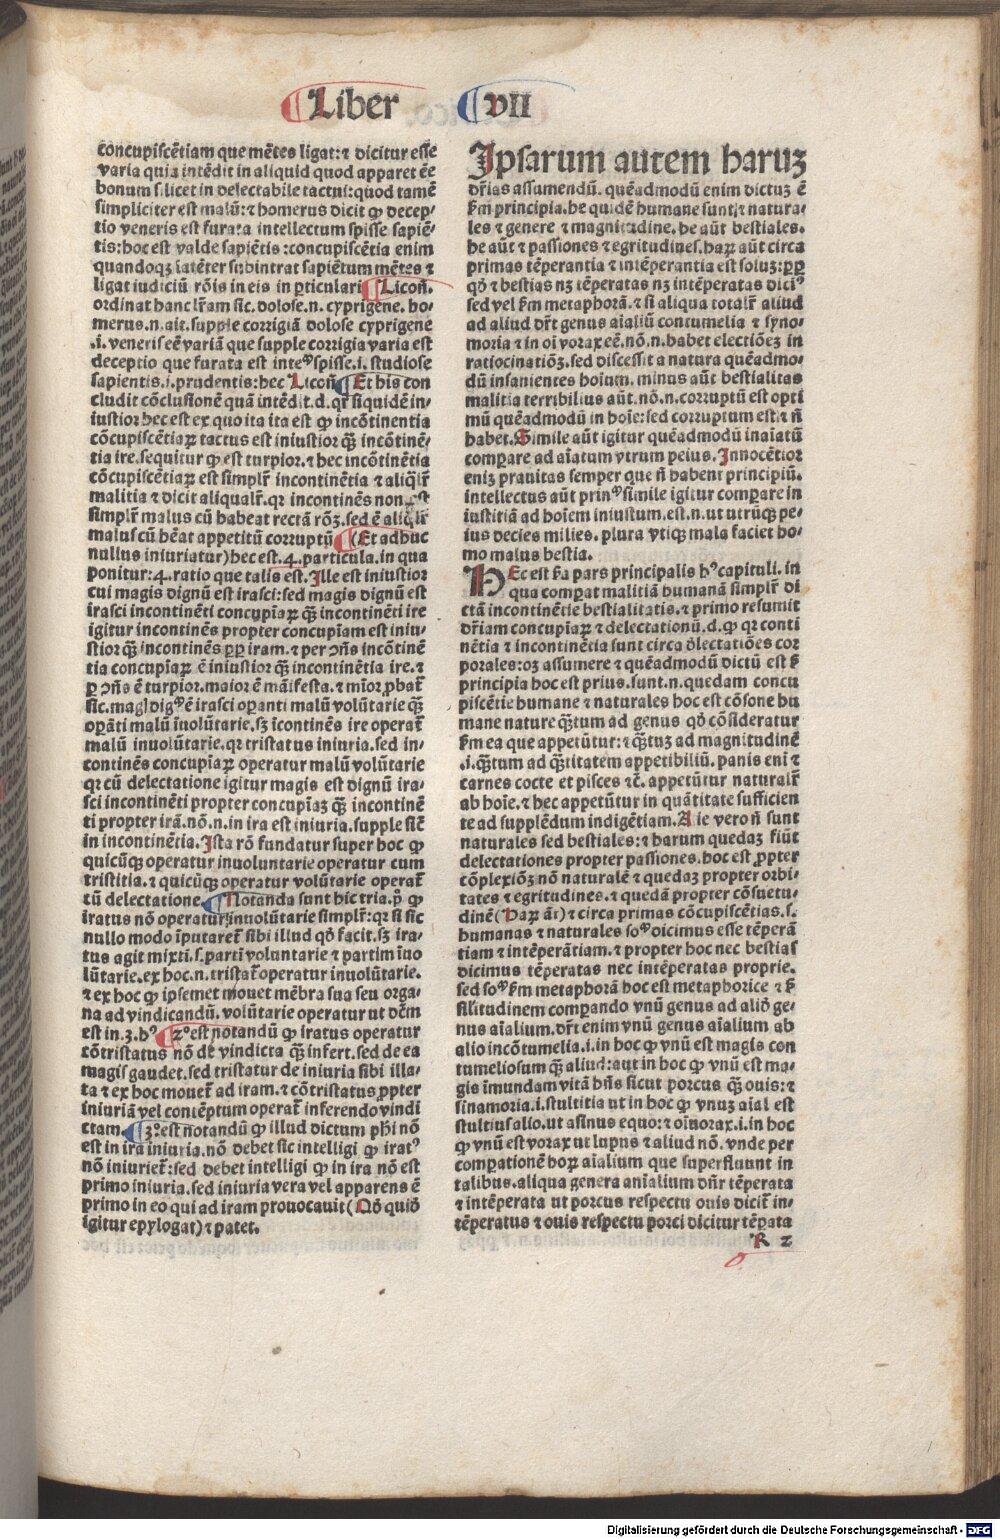 Liber VII
cōncupiscētiam que mētes ligat:⁊ dicitur esse
varia quia intēdit in aliquid quod apparet ēe
bonum s.licet in delectabile tactui:quod tamē
simpliciter est malū:⁊ homerus dicit ꝙ decep⸗
tio veneris est furata intellectum spisse sapiē⸗
tis:hoc est valde sapiētis:concupiscētia enim
quandoqꝫ latēter subintrat sapiētum mētes ⁊
ligat iudiciū rōis in eis in ꝑticulari Licoñ.
ordinat hanc lr̄am sic.dolose.n.cyprigene.ho⸗
merus.n.ait.supple corrigiā dolose cyprigene
.i.veneris eē variā que supple corrigia varia est
deceptio que furata est inteꝰspisse.i.studiose
sapientis.i.prudentis:hec Licoñ Et his con
cludit cōclusionē quā intēdit.d.qr̄ siquidē in⸗
iustior hec est ex quo ita ita est ꝙ incōtinentia
cōcupiscētiaꝝ tactus est iniustior qꝫ incōtinē⸗
tia ire.sequitur ꝙ est turpior.⁊ hec incōtinētia
cōcupiscētiaꝝ est simplr̄ incontinētia ⁊ aliqlr̄
malitia ⁊ dicit aliqualr̄.qꝛ incontinēs non est
simplr̄ malus cū habeat rectā rōꝫ.sed ē aliqlr̄
malus cū hēat appetitū corruptū (Et adhuc
nullus iniuriatur)hec est.4.particula.in qua
ponitur:4.ratio que talis est.Ille est iniustior
cui magis dignū est irasci:sed magis dignū est
irasci incontinēti concupīaꝝ qꝫ incontinēti ire
igitur incontinēs propter concupīam est iniu⸗
stior qꝫ incontinēs ꝓpꝑ iram.⁊ per ↄñs incōtinē
tia concupīaꝝ ē iniustior qꝫ incontinētia ire.⁊
ꝑ ↄñs ē turpior.maior ē māifesta.⁊ mīor ꝓbat̄
sic.magꝭ digꝰē irasci oꝑanti malū volūtarie qꝫ
oꝑāti malū īuolūtarie.sꝫ īcontinēs ire operat̄
malū inuolūtarie.qꝛ tristatus iniuria.sed in⸗
continēs concupīaꝝ operatur malū volūtarie
qꝛ cū delectatione igitur magis est dignū ira⸗
sci incontinēti propter concupīaꝫ qꝫ incontinē
ti propter irā.nō.n.in ira est iniuria.supple sic̄
in incontinētia.Ista rō fundatur super hoc ꝙ
quicūqꝫ operatur inuoluntarie operatur cum
tristitia.⁊ quicūqꝫ operatur volūtarie operat̄
tū delectatione. Notanda sunt hic tria.ṗ ꝙ
iratus nō operatur inuolūtarie simplr̄:qꝛ si sic
nullo modo īputaret̄ sibi illud qḋ facit.sꝫ ira⸗
tus agit mixti.s.parti voluntarie ⁊ partim īuo
lūtarie.ex hoc.n.tristat̄ operatur inuolūtarie.
⁊ ex hoc ꝙ ipsemet mouet mēbra sua seu orga⸗
na ad vindicandū.volūtarie operatur ut dēm
est in.3.hꝰ 2ºest notandū ꝙ iratus operatur
cōtristatus nō de vindicta qꝫ infert.sed de ea
magis gaudet.sed tristatur de iniuria sibi illa⸗
ta ⁊ ex hoc mouet̄ ad iram.⁊ cōtristatus ꝓpter
iniuriā vel contēptum operat̄ inferendo vindi
ctam. 3ºest notandū ꝙ illud dictum phī nō
est in ira iniuria.nō debet sic intelligi ꝙ iratꝰ
nō iniuriet̄:sed debet intelligi ꝙ in ira nō est
primo iniuria.sed iniuria vera vel apparens ē
primo in eo qui ad iram prouocauit(Qḋ quiḋ
igitur epylogat)⁊ patet.
Ipsarum autem haruꝫ
dr̄ias assumendū.quēadmodū enim dictuꝫ ē
ẜm principia.he quidē humane sunt:⁊ natura⸗
les ⁊ genere ⁊ magnitudine.he aūt bestiales.
he aūt ⁊ passiones ⁊ egritudines.haꝝ aūt circa
primas tēperantia ⁊ intēperantia est soluꝫ:ꝓpꝑ
qḋ ⁊ bestias nꝫ tēperatas nꝫ intēperatas diciꝰ
sed vel ẜm metaphorā.⁊ si aliqua totalr̄ aliud
ad aliud dr̄t genus aīaliū contumelia ⁊ syno⸗
moria ⁊ in oī vorax eē.nō.n.habet electiōeꝫ in
ratiocinatiōꝫ.sed discessit a natura quēadmo⸗
dū insanientes hoīum.minus aūt bestialitas
malitia terribilius aūt.nō.n.corruptū est opti
mū quēadmodū in hoīe:sed corruptum est:⁊ ñ
habet.Simile aūt igitur quēadmodū inaīatū
comꝑare ad aīatum vtrum peius.Innocētior
eniꝫ prauitas semper que ñ habent principiū.
intellectus aūt prinꝰsimile igitur comꝑare in
iustitiā ad hoīem iniustum.est.n.ut utrūqꝫ pe⸗
ius decies milies.plura vtiqꝫ mala faciet ho⸗
mo malus bestia.
HEc est ẜa pars principalis hꝰcapituli.in
qua comꝑat malitiā humanā simplr̄ di
ctā incontinētie bestialitatis.⁊ primo resumit
dr̄iam concupīaꝝ ⁊ delectationū.d.ꝙ qꝛ conti
nētia ⁊ incontinētia sunt circa ḋlectatiōes cor
porales:oꝫ assumere ⁊ quēadmodū dictū est ẜ
principia hoc est prius.sunt.n.quedam concu
piscētie humane ⁊ naturales hoc est cōsone hu
mane nature qꝫtum ad genus qḋ cōsideratur
ẜm ea que appetūtur:⁊ qꝫtuꝫ ad magnitudinē
.i.qꝫtum ad qꝫtitatem appetibiliū.panis eni ⁊
carnes cocte et pisces ⁊c̄.appetūtur naturalr̄
ab hoīe.⁊ hec appetūtur in quātitate sufficien
te ad supplēdum indigētiam.Alie vero ñ sunt
naturales sed bestiales:⁊ harum quedaꝫ fiūt
delectationes propter passiones.hoc est ꝓpter
cōplexiōꝫ nō naturalē ⁊ quedaꝫ propter orbi⸗
tates ⁊ egritudines.⁊ quedā propter cōsuetu⸗
dinē(Haꝝ āt)⁊ circa primas cōcupiscētias.s.
humanas ⁊ naturales soꝰdicimus esse tēperā
tiam ⁊ intēperātiam.⁊ propter hoc nec bestias
dicimus tēperatas nec intēperatas proprie.
sed soꝰẜm metaphorā hoc est metaphorice ⁊ ẜ
silitudinem comꝑando vnū genus ad aliḋ ge⸗
nus aīalium.dr̄t enim vnū genus aīalium ab
alio incōtumelia.i.in hoc ꝙ vnū est magis con
tumeliosum qꝫ aliud:aut in hoc ꝙ vnū est ma⸗
gis īmundam vitā hn̄s sicut porcus qꝫ ouis:⁊
sinamoria.i.stultitia ut in hoc ꝙ vnuꝫ aīal est
stultius alio.ut asinus equo:⁊ oīuorax.i.in hoc
ꝙ vnū est vorax ut lupus ⁊ aliud nō.vnde per
comꝑationē hoꝝ aīalium que superfluunt in
talibus.aliqua genera anīalium dn̄r tēperata
⁊ intēperata ut porcus respectu ouis dicit̄ in⸗
tēperatus ⁊ ouis respectu porci dicitur tēꝑata
R 2
Digitalisierung gefördert durch die Deutsche Forschungsgemeinschaft - DFG